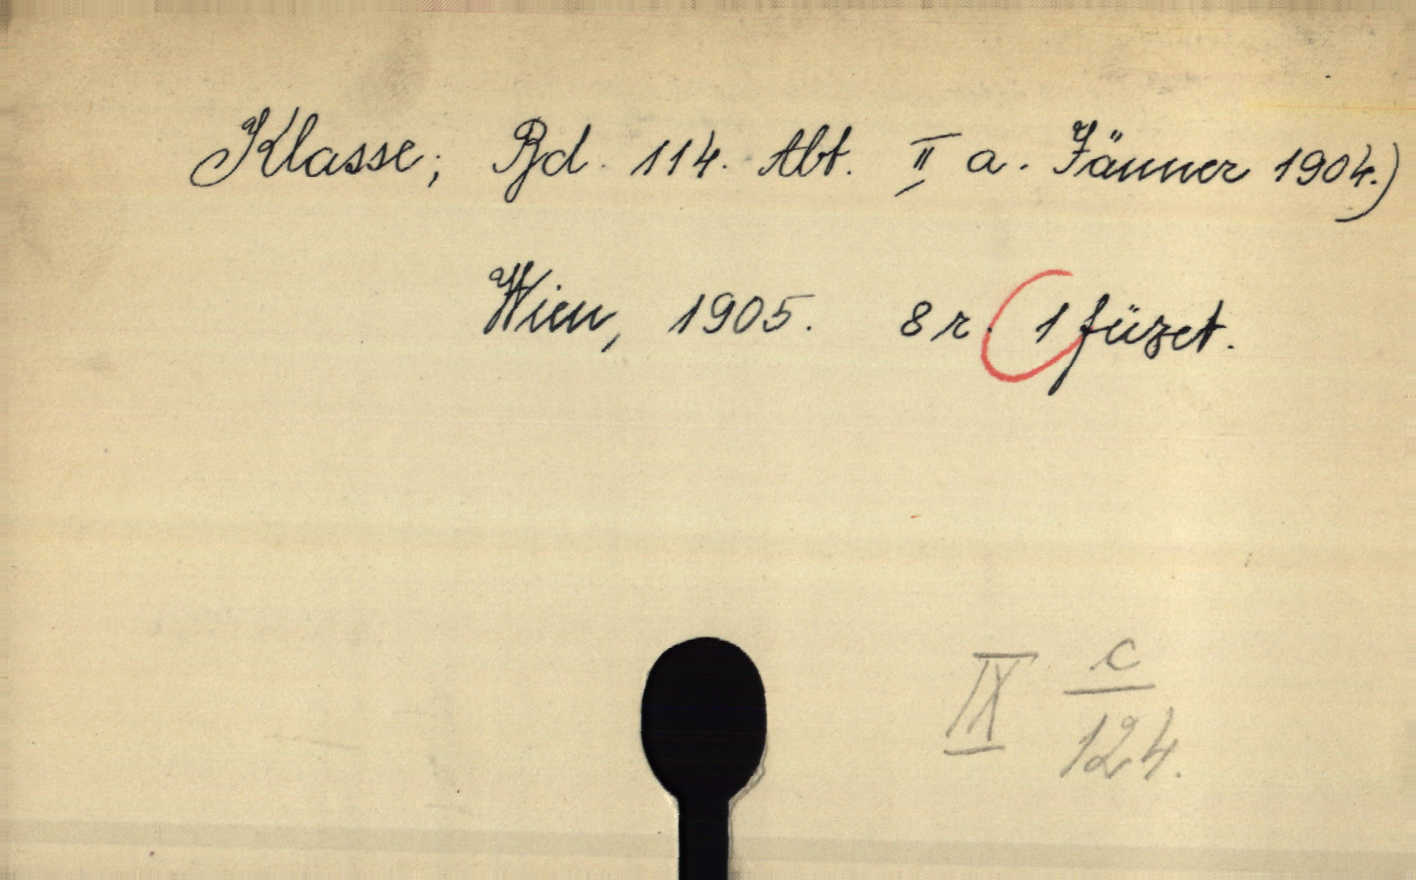 Klasse; Bd. 114. Abt. II a. Jänner 1904.)
Wien, 1905. 8 r. 1 füzet.
IX c/124.